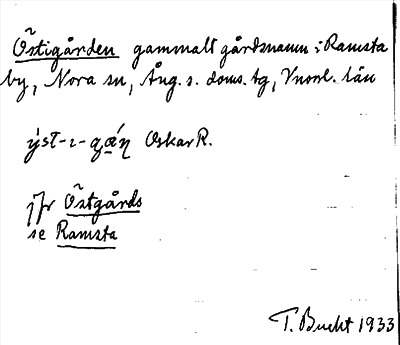 Östigården gammalt gårdsnamn i Ramsta
by, Nora sn, Ång. s. doms. tg, Vnorrl. län
ýst-ı-gǽṇ Oskar R.
jfr Östgårds
se Ramsta
T. Bucht 1933